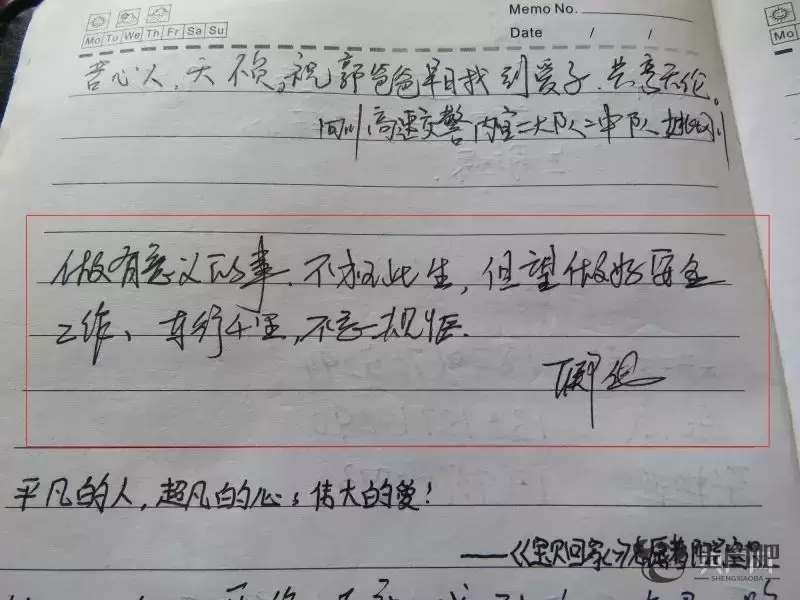 Memo No.
Mo Tu We Th Fr Sa Su
Date / /
Mo
苦心人,天不负。祝郭爸爸早日找到爱子.共享天伦。
四川高速交警内宜二大队二中队
做有意义的事.不枉此生,但望做好安全
工作、车行千里,不忘规矩.
平凡的人,超凡的心;伟大的爱!
——《宝贝回家》志愿者
SHENGXIAOBA